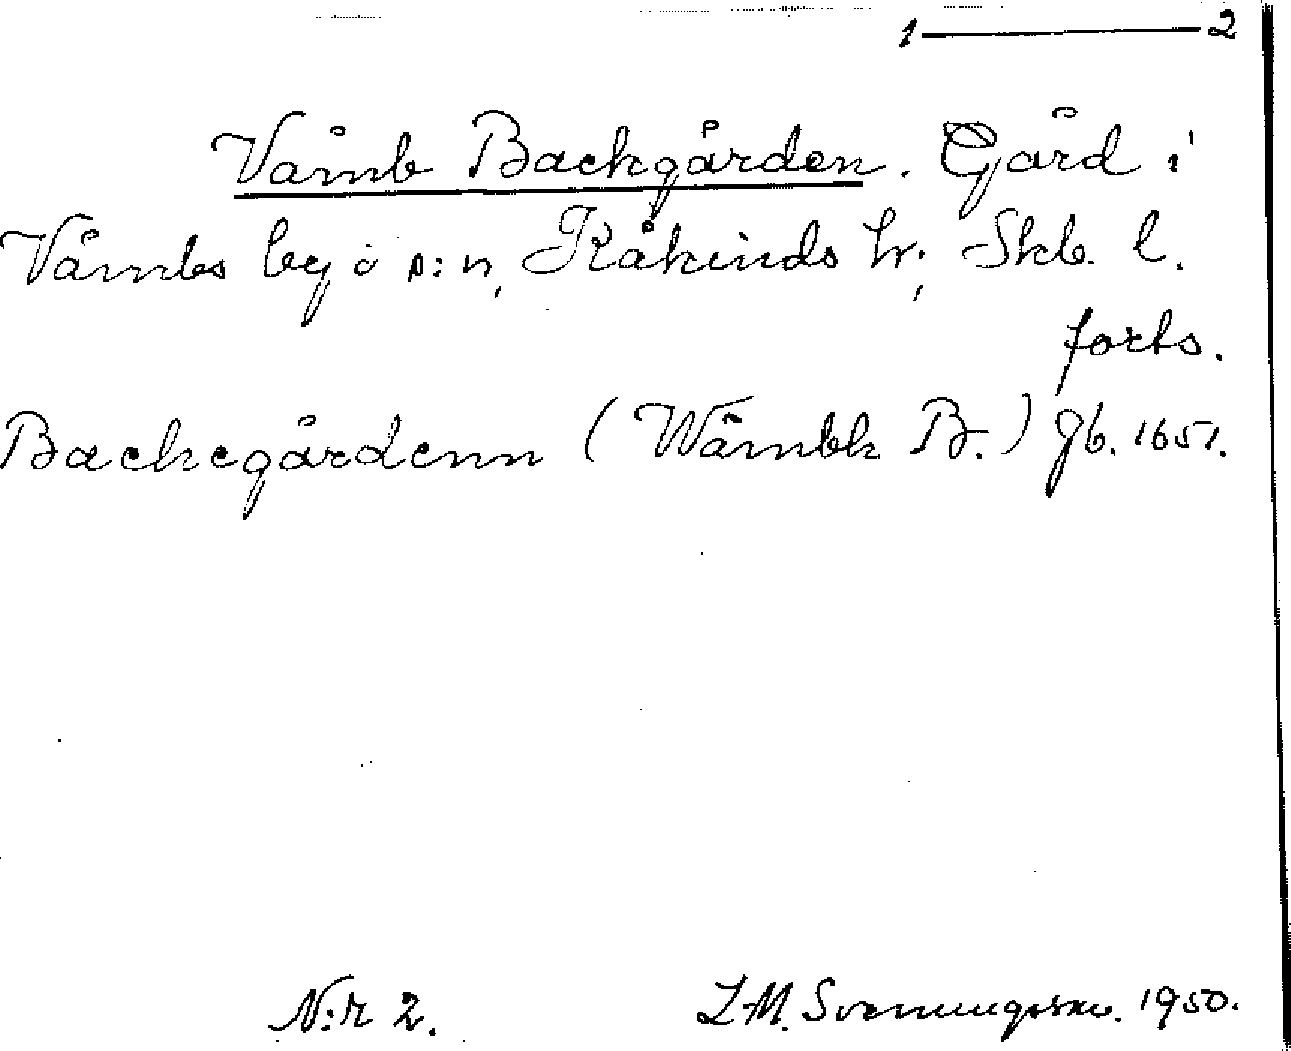 1 — 2
Våmb Backgården. Gård i
Våmbs by o s:n, Kåkinds hr; Skb. l.
forts.
Backegårdenn (Wåmbh B.) Jb. 1651.
N:r 2. L.M. Svenungsson. 1950.